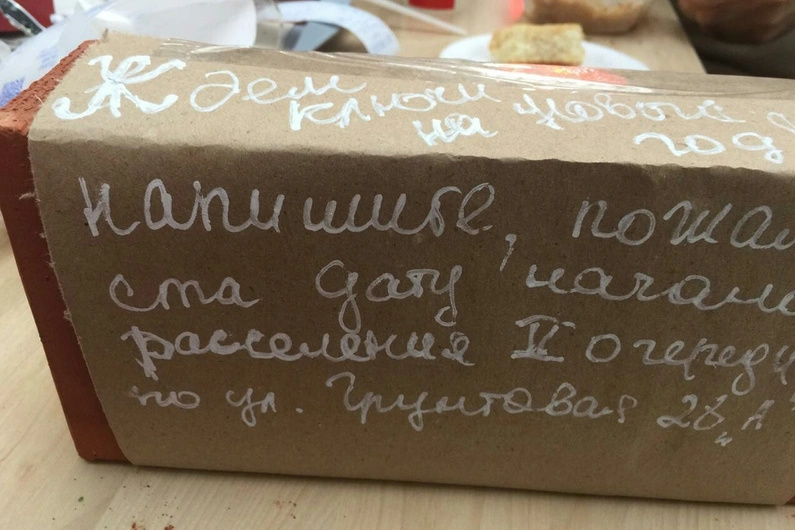 Ждем ключи на Новый год
напишите, пожал
ста дату начала
расселения II очереди
по ул. Грунтовая 28 „А"